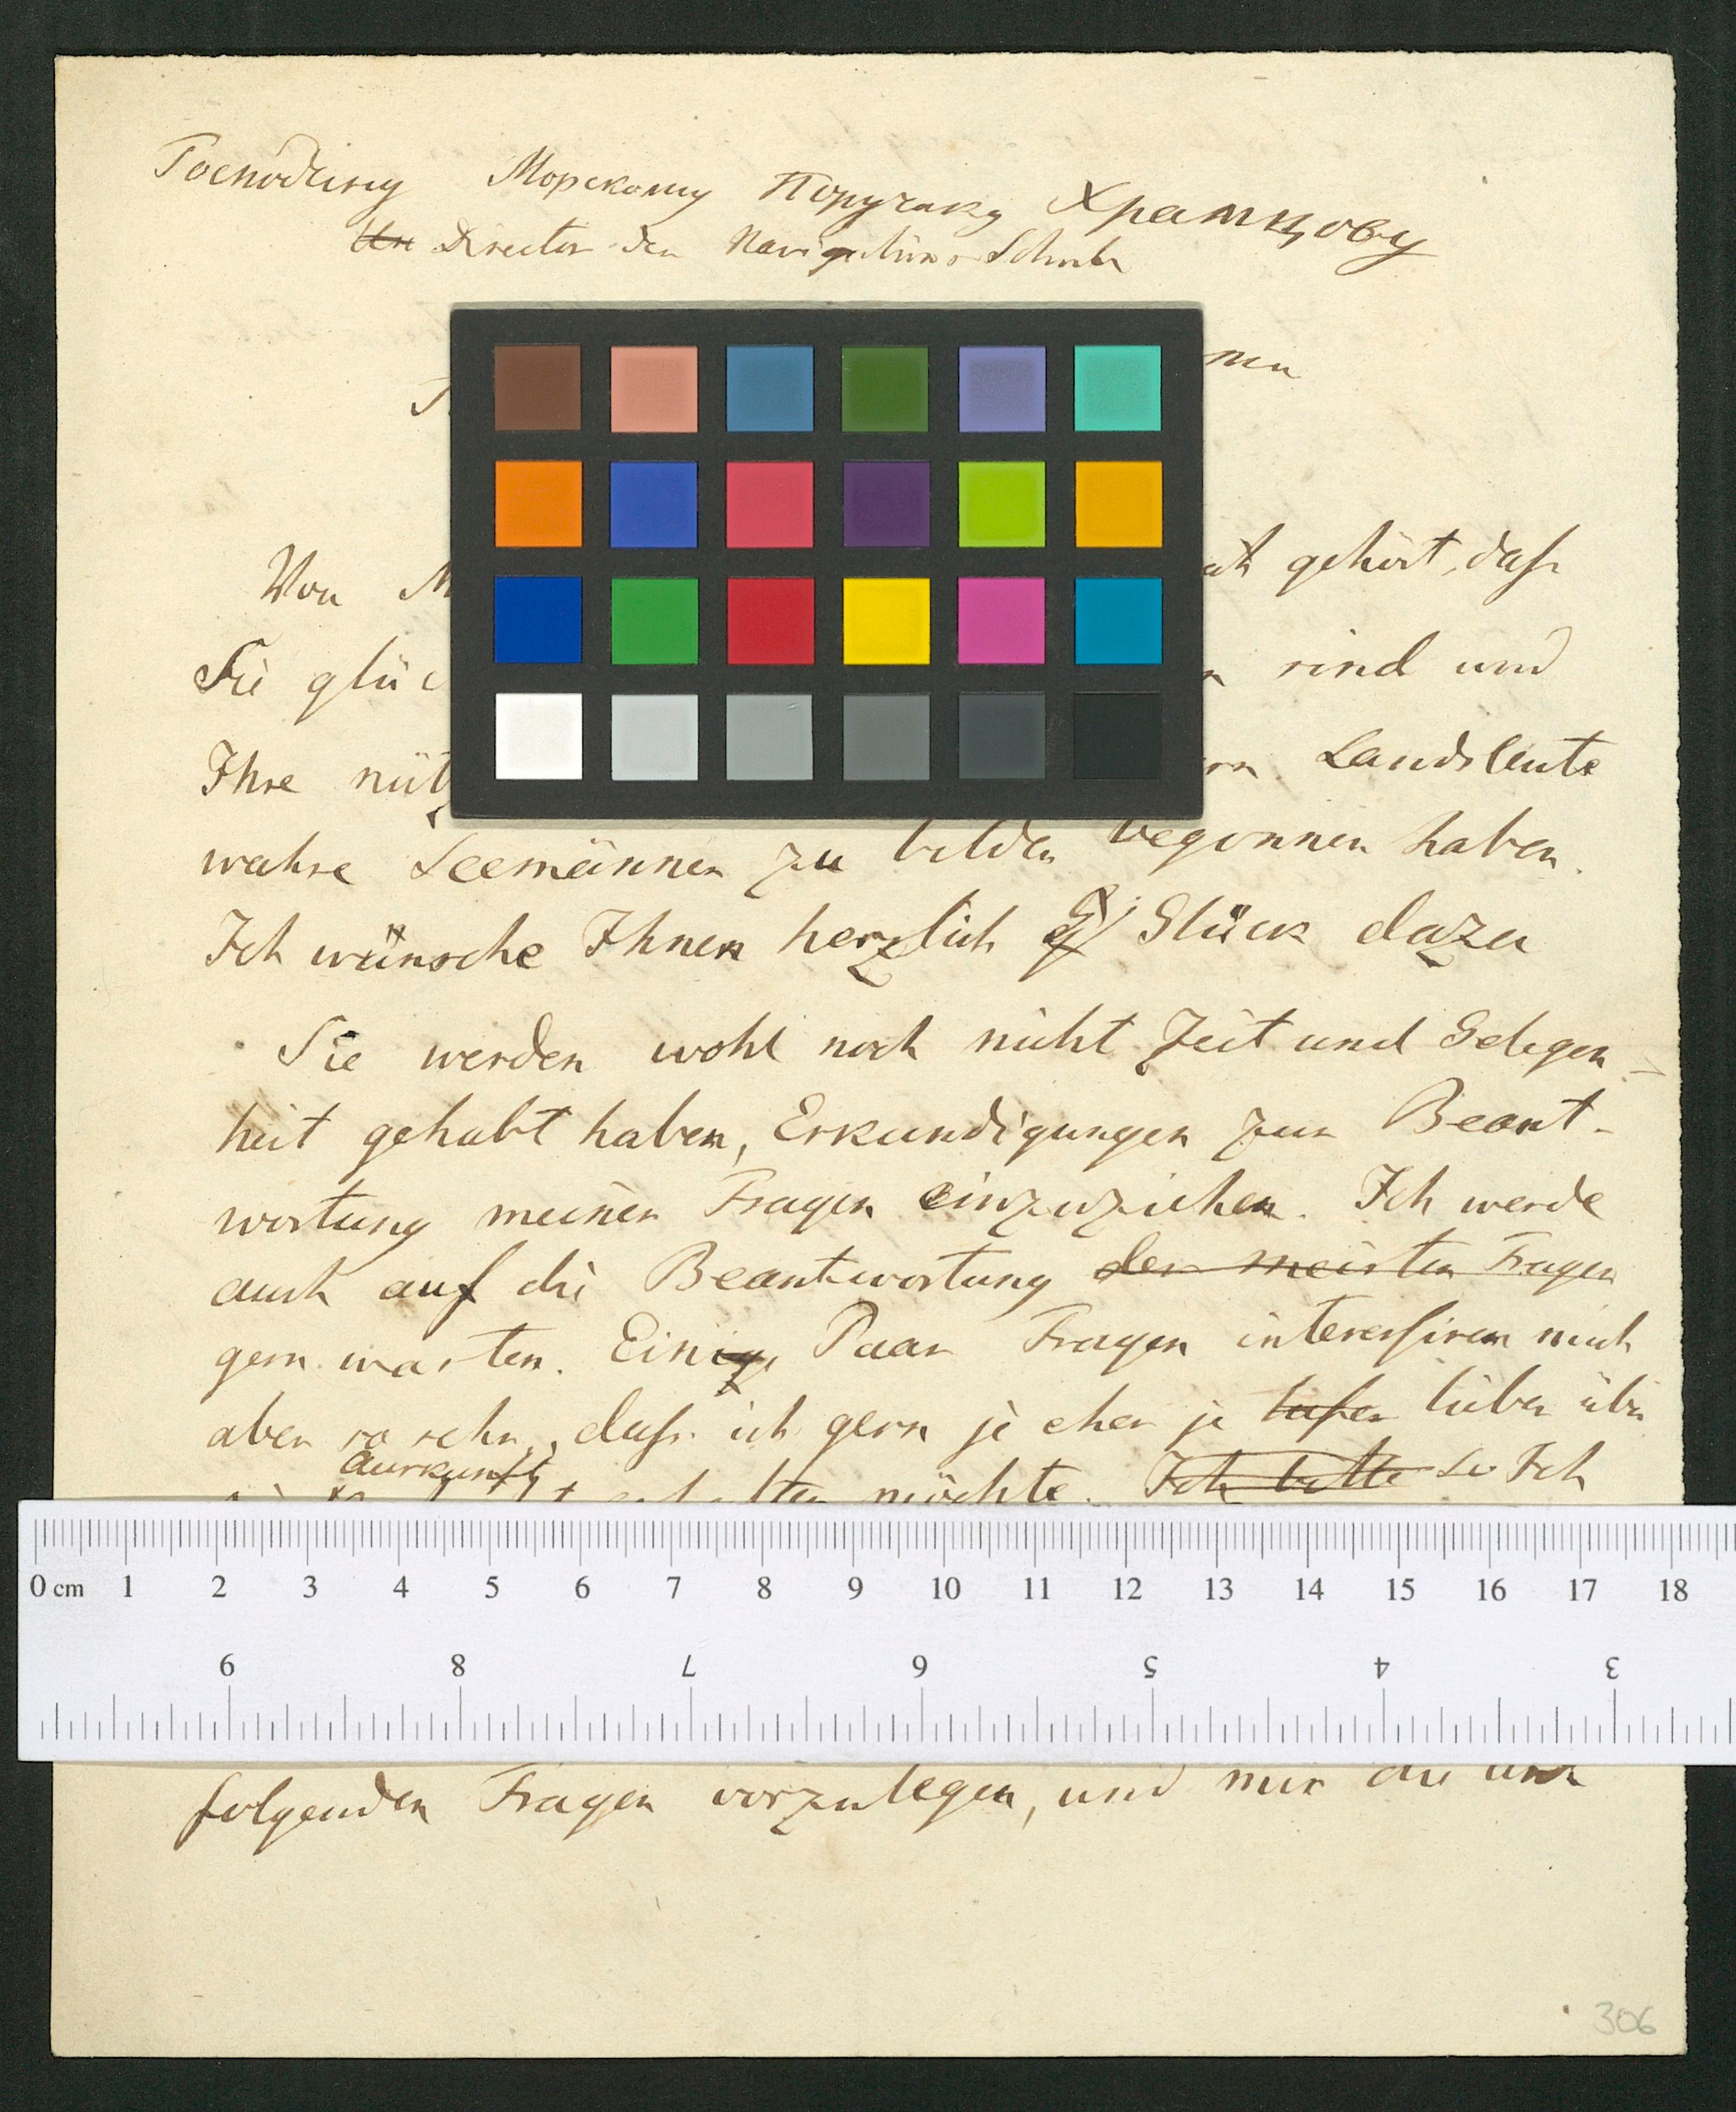 Господину Морскому Поручику Храмцову
Director der Navigations Schule
men
Von M
gehört, dass
Sie glüc
sind und
Ihre nütz
Landsleute
wahre Seemänner zu bilden begonnen haben.
Ich wünsche Ihnen herzlich Glück dazu
Sie werden wohl noch nicht Zeit und Gelegen-
heit gehabt haben, Erkundigungen zur Beant-
wortung meiner Fragen einzuziehen. Ich werde
auch auf die Beantwortung der meisten Fragen
gern warten. Einige Paar Fragen interessiren mich
aber so sehr, dass ich gern je eher je lieber über
Auskunft
möchte. Ich bitte Ich
0 cm 1 2 3 4 5 6 7 8 9 10 11 12 13 14 15 16 17 18
9 8 7 6 5 4 3
folgenden Fragen vorzulegen, und mir die
306